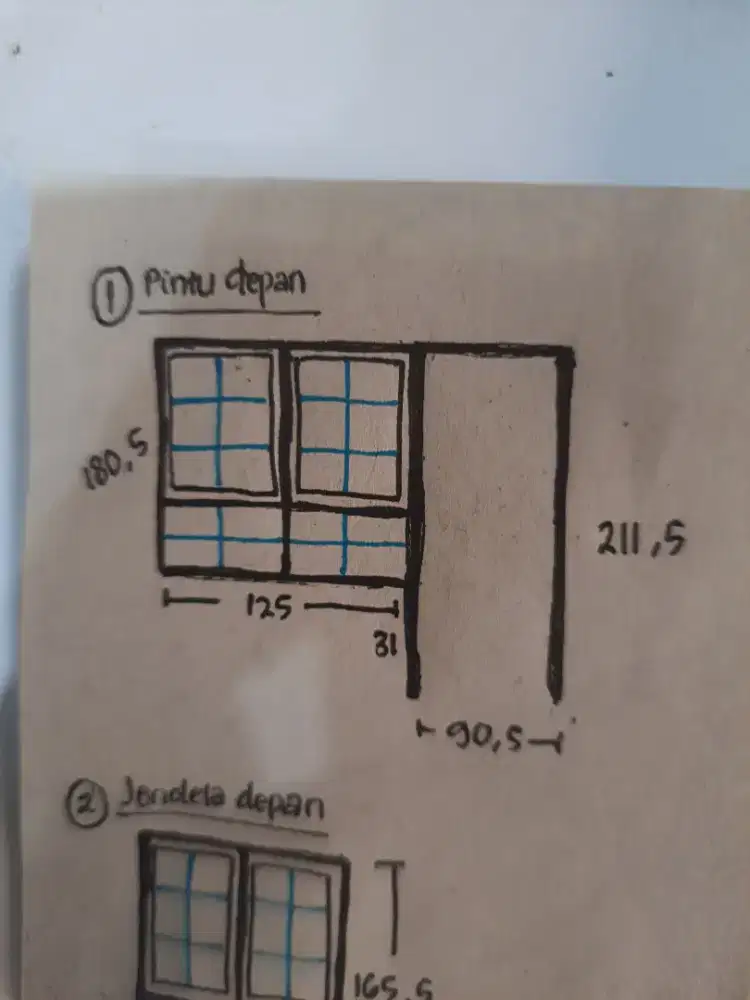 1 Pintu depan
180,5
211,5
125
31
90,5
2 Jendela depan
165,5